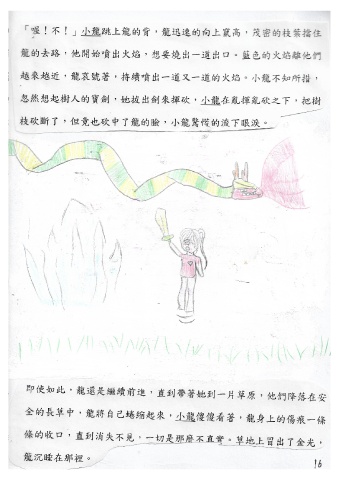 「喔！不！」小龍跳上龍的背，龍迅速的向上竄高，茂密的枝葉擋住
龍的去路，他開始噴出火焰，想要燒出一道出口。藍色的火焰離他們
越來越近，龍哀號著，持續噴出一道又一道的火焰。小龍不知所措，
忽然想起樹人的寶劍，她拔出劍來揮砍，小龍在亂揮亂砍之下，把樹
枝砍斷了，但竟也砍中了龍的臉，小龍驚慌的流下眼淚。
即使如此，龍還是繼續前進，直到帶著她到一片草原，他們降落在安
全的長草中，龍將自己蜷縮起來，小龍傻傻看著，龍身上的傷痕一條
條的收口，直到消失不見，一切是那麼不真實。草地上冒出了金光，
龍沉睡在那裡。
16